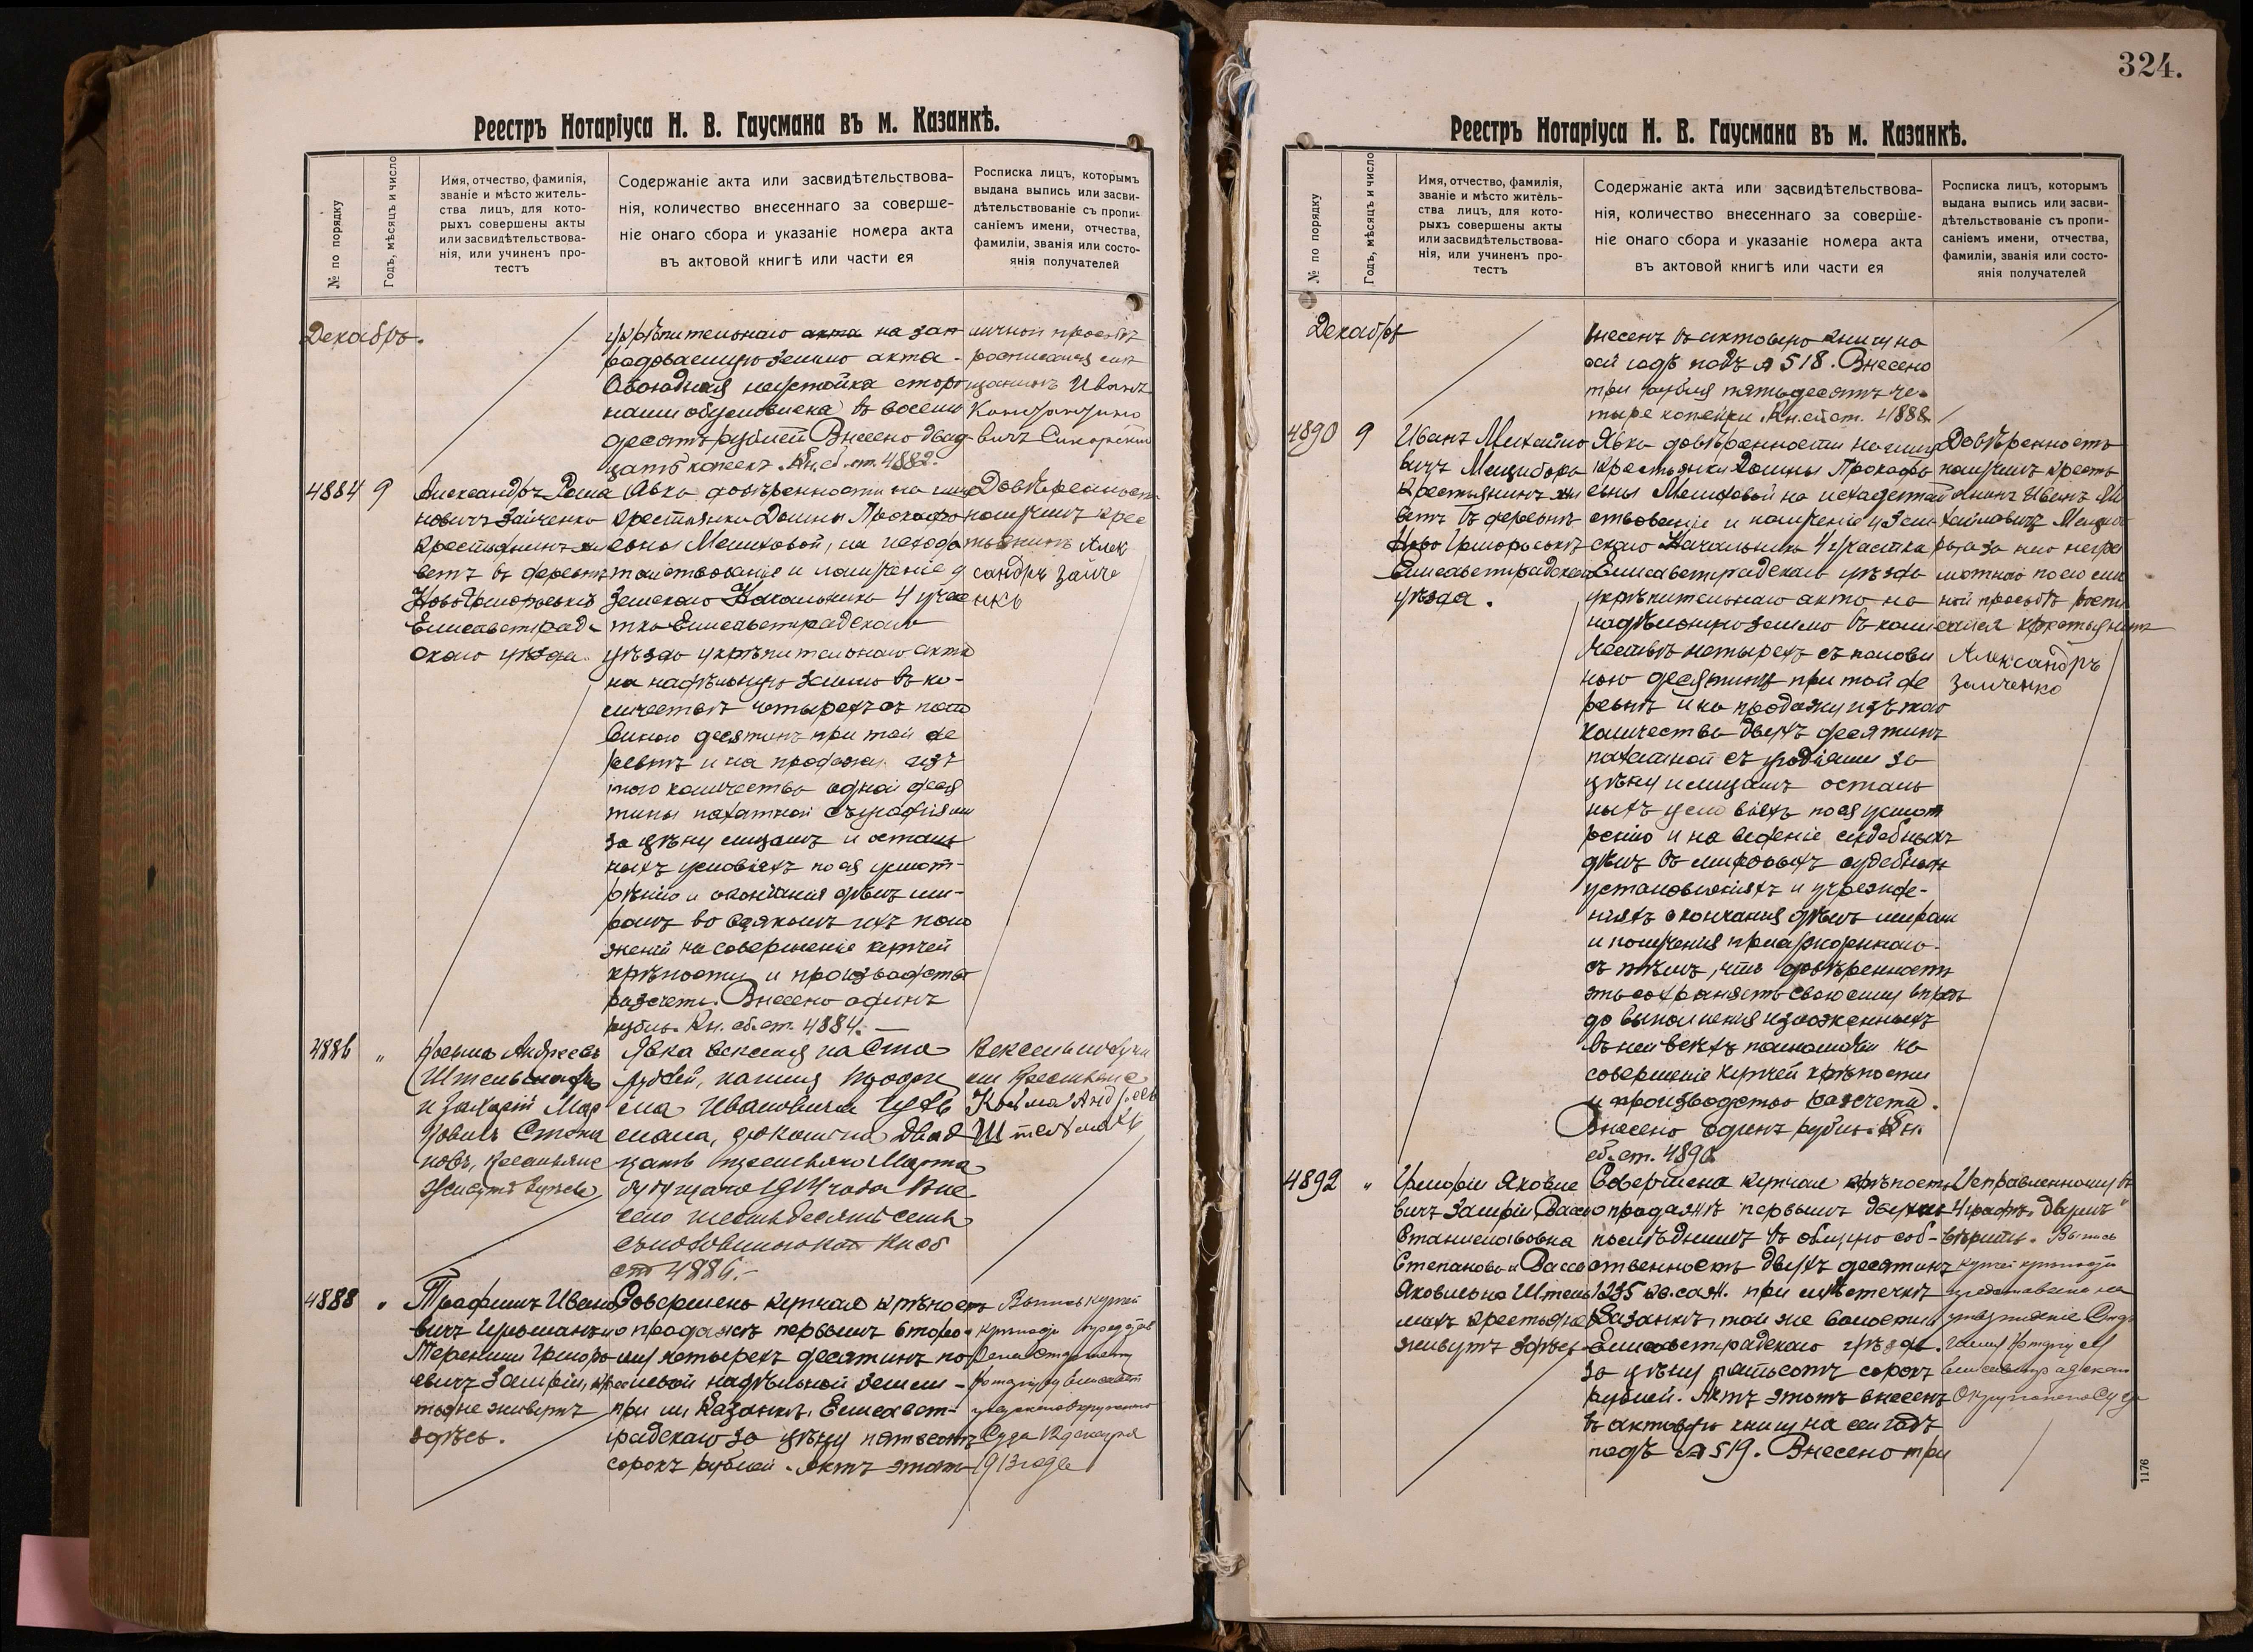 Реестръ Нотаріуса Н. В. Гаусмана въ м. Казанкѣ.
№ по порядку
Годъ, мѣсяцъ и число
Имя, отчество, фамилія,
званіе и мѣсто житель-
ства лицъ, для кото-
рыхъ совершены акты
или засвидѣтельствова-
нія, или учиненъ про-
тестъ
Содержаніе акта или засвидѣтельствова-
нія, количество внесеннаго за соверше-
ніе онаго сбора и указаніе номера акта
въ актовой книгѣ или части ея
Росписка лицъ, которымъ
выдана выпись или засви-
дѣтельствованіе съ пропи-
саніемъ имени, отчества,
фамиліи, званія или состо-
янія получателей
Декабрь.
укрѣпительнаго акта на зап
родаваемую землю акта.
Обоюдная неустойка сторо
нами обусловлена въ восемь
десятъ рублей Внесено двад
цать копеекъ. Кн. сб. ст. 4882.
личной просьбѣ
росписался мѣ
щанинъ Иванъ
вичъ Сикорскій
4884 9
Александръ Рома
новичъ Зайченко
крестьянинъ жи
ветъ въ деревнѣ
Ново Григорьевкѣ
Елисаветград-
скаго уѣзда.
Явка довѣренности на имя
крестьянки Домны Прокофь
евны Мешковой, на исхода
тайствованіе и полученіе у
Земскаго Начальника 4 учас
тка Елисаветградскаго
уѣзда укрѣпительнаго акта
на надѣльную землю въ ко-
личествѣ четырехъ съ поло
виною десятинъ при той де
ревнѣ и на продажу изъ
того количества одной деся
тины пахатной съ угодіями
за цѣну лицамъ и осталь
ныхъ условіяхъ по ея усмот-
рѣнію и окончанія дѣлъ ми-
ромъ во всякомъ ихъ поло
женіи на совершеніе купчей
крѣпости и производство
разсчета. Внесено одинъ
рубль. Кн. сб. ст. 4884. —
Довѣренность
получилъ крес
тьянинъ Алек
сандръ Зайче
нко
4886 "
Козьма Андреевъ
Штельмахъ
и Захарій Мар
ковичъ
крестьяне
Явка векселя на сто
рублей,
Ивановича
двад
цать Марта
1914 года Вне
сено шестьдесятъ семь
съ половиною коп Кн сб
ст 4886.-
Вексель получи
ли крестьяне
Козьма Андреевъ
Штельмахъ
4888 "
Трофимъ Ивано
вичъ
Терентій Григорь
евичъ Замрій, крес
тьяне живутъ
здѣсь.
Совершена купчая крѣпость
о продажѣ первымъ второ
му четырехъ десятинъ по
левой надѣльной земли -
при м. Казанкѣ, Елисавет-
градскаго за цѣну пятьсотъ
сорокъ рублей. Актъ этотъ
Выпись купчей
крѣпости представ
лена Старшему
Нотаріусу Елисавет
градскаго Окружнаго
Суда 12 декабря
1913 года
324.
Реестръ Нотаріуса Н. В. Гаусмана въ м. Казанкѣ.
№ по порядку
Годъ, мѣсяцъ и число
Имя, отчество, фамилія,
званіе и мѣсто житель-
ства лицъ, для кото-
рыхъ совершены акты
или засвидѣтельствова-
нія, или учиненъ про-
тестъ
Содержаніе акта или засвидѣтельствова-
нія, количество внесеннаго за соверше-
ніе онаго сбора и указаніе номера акта
въ актовой книгѣ или части ея
Росписка лицъ, которымъ
выдана выпись или засви-
дѣтельствованіе съ пропи-
саніемъ имени, отчества,
фамиліи, званія или состо-
янія получателей
Декабрь
внесенъ въ актовую книгу на
сей годъ подъ № 518. Внесено
три рубля пятьдесятъ че-
тыре копейки. Кн. сб. ст. 4888.
4890 9
Иванъ Михайло
вичъ Мещибора
крестьянинъ жи
ветъ въ деревнѣ
Ново Григорьевкѣ
Елисаветградскаго
уѣзда.
Явка довѣренности на имя
крестьянки Домны Прокофь
евны Мешковой на исходатай
ствованіе и полученіе у Зем
скаго Начальника 4 участка
Елисаветградскаго уѣзда
укрѣпительнаго акта на
надѣльную землю въ коли
чествѣ четырехъ съ полови
ною десятинъ при той де
ревнѣ и на продажу изъ того
количества двухъ десятинъ
пахатной съ угодіями за
цѣну и лицамъ осталь
ныхъ условіяхъ по ея усмот
рѣнію и на веденіе судебныхъ
дѣлъ въ мировыхъ судебныхъ
установленіяхъ и учрежде-
ніяхъ окончанія дѣлъ миромъ
и полученія присужденнаго
съ тѣмъ, что довѣренность
эта сохраняетъ свою силу впредь
до выполненія изложенныхъ
въ ней всѣхъ полномочій на
совершеніе купчей крѣпости
и производство разсчета.
Внесено одинъ рубль. Кн.
сб. ст. 4890.
Довѣренность
получилъ кресть
янинъ Иванъ Ми
хайловичъ Мещибо
ра, а за него негра
мотнаго по его лич
ной просьбѣ роспи
сался крестьянинъ
Александръ
Заиченко
4892 "
Григорій Яковле
вичъ Замрій, Васс
Станиславовна
Степанова и Васса
Яковлевна Штель
махъ крестьяне
живутъ здѣсь
Совершена купчая крѣпость
о продажѣ первымъ двумъ
послѣднимъ въ общую соб-
ственность двухъ десятинъ
1235 кв. саж. при мѣстечкѣ
Казанкѣ, той же волости
Елисаветградскаго уѣзда.
за цѣну пятьсотъ сорокъ
рублей. Актъ этотъ внесенъ
въ актовую книгу на сей годъ
подъ № 519. Внесено три
Исправленному въ
4 графѣ „двумъ"
вѣрить. Выпись
купчей крѣпости
представлена на
утвержденіе Стар
шему Нотаріусу
Елисаветградскаго
Окружнаго Суда
1176